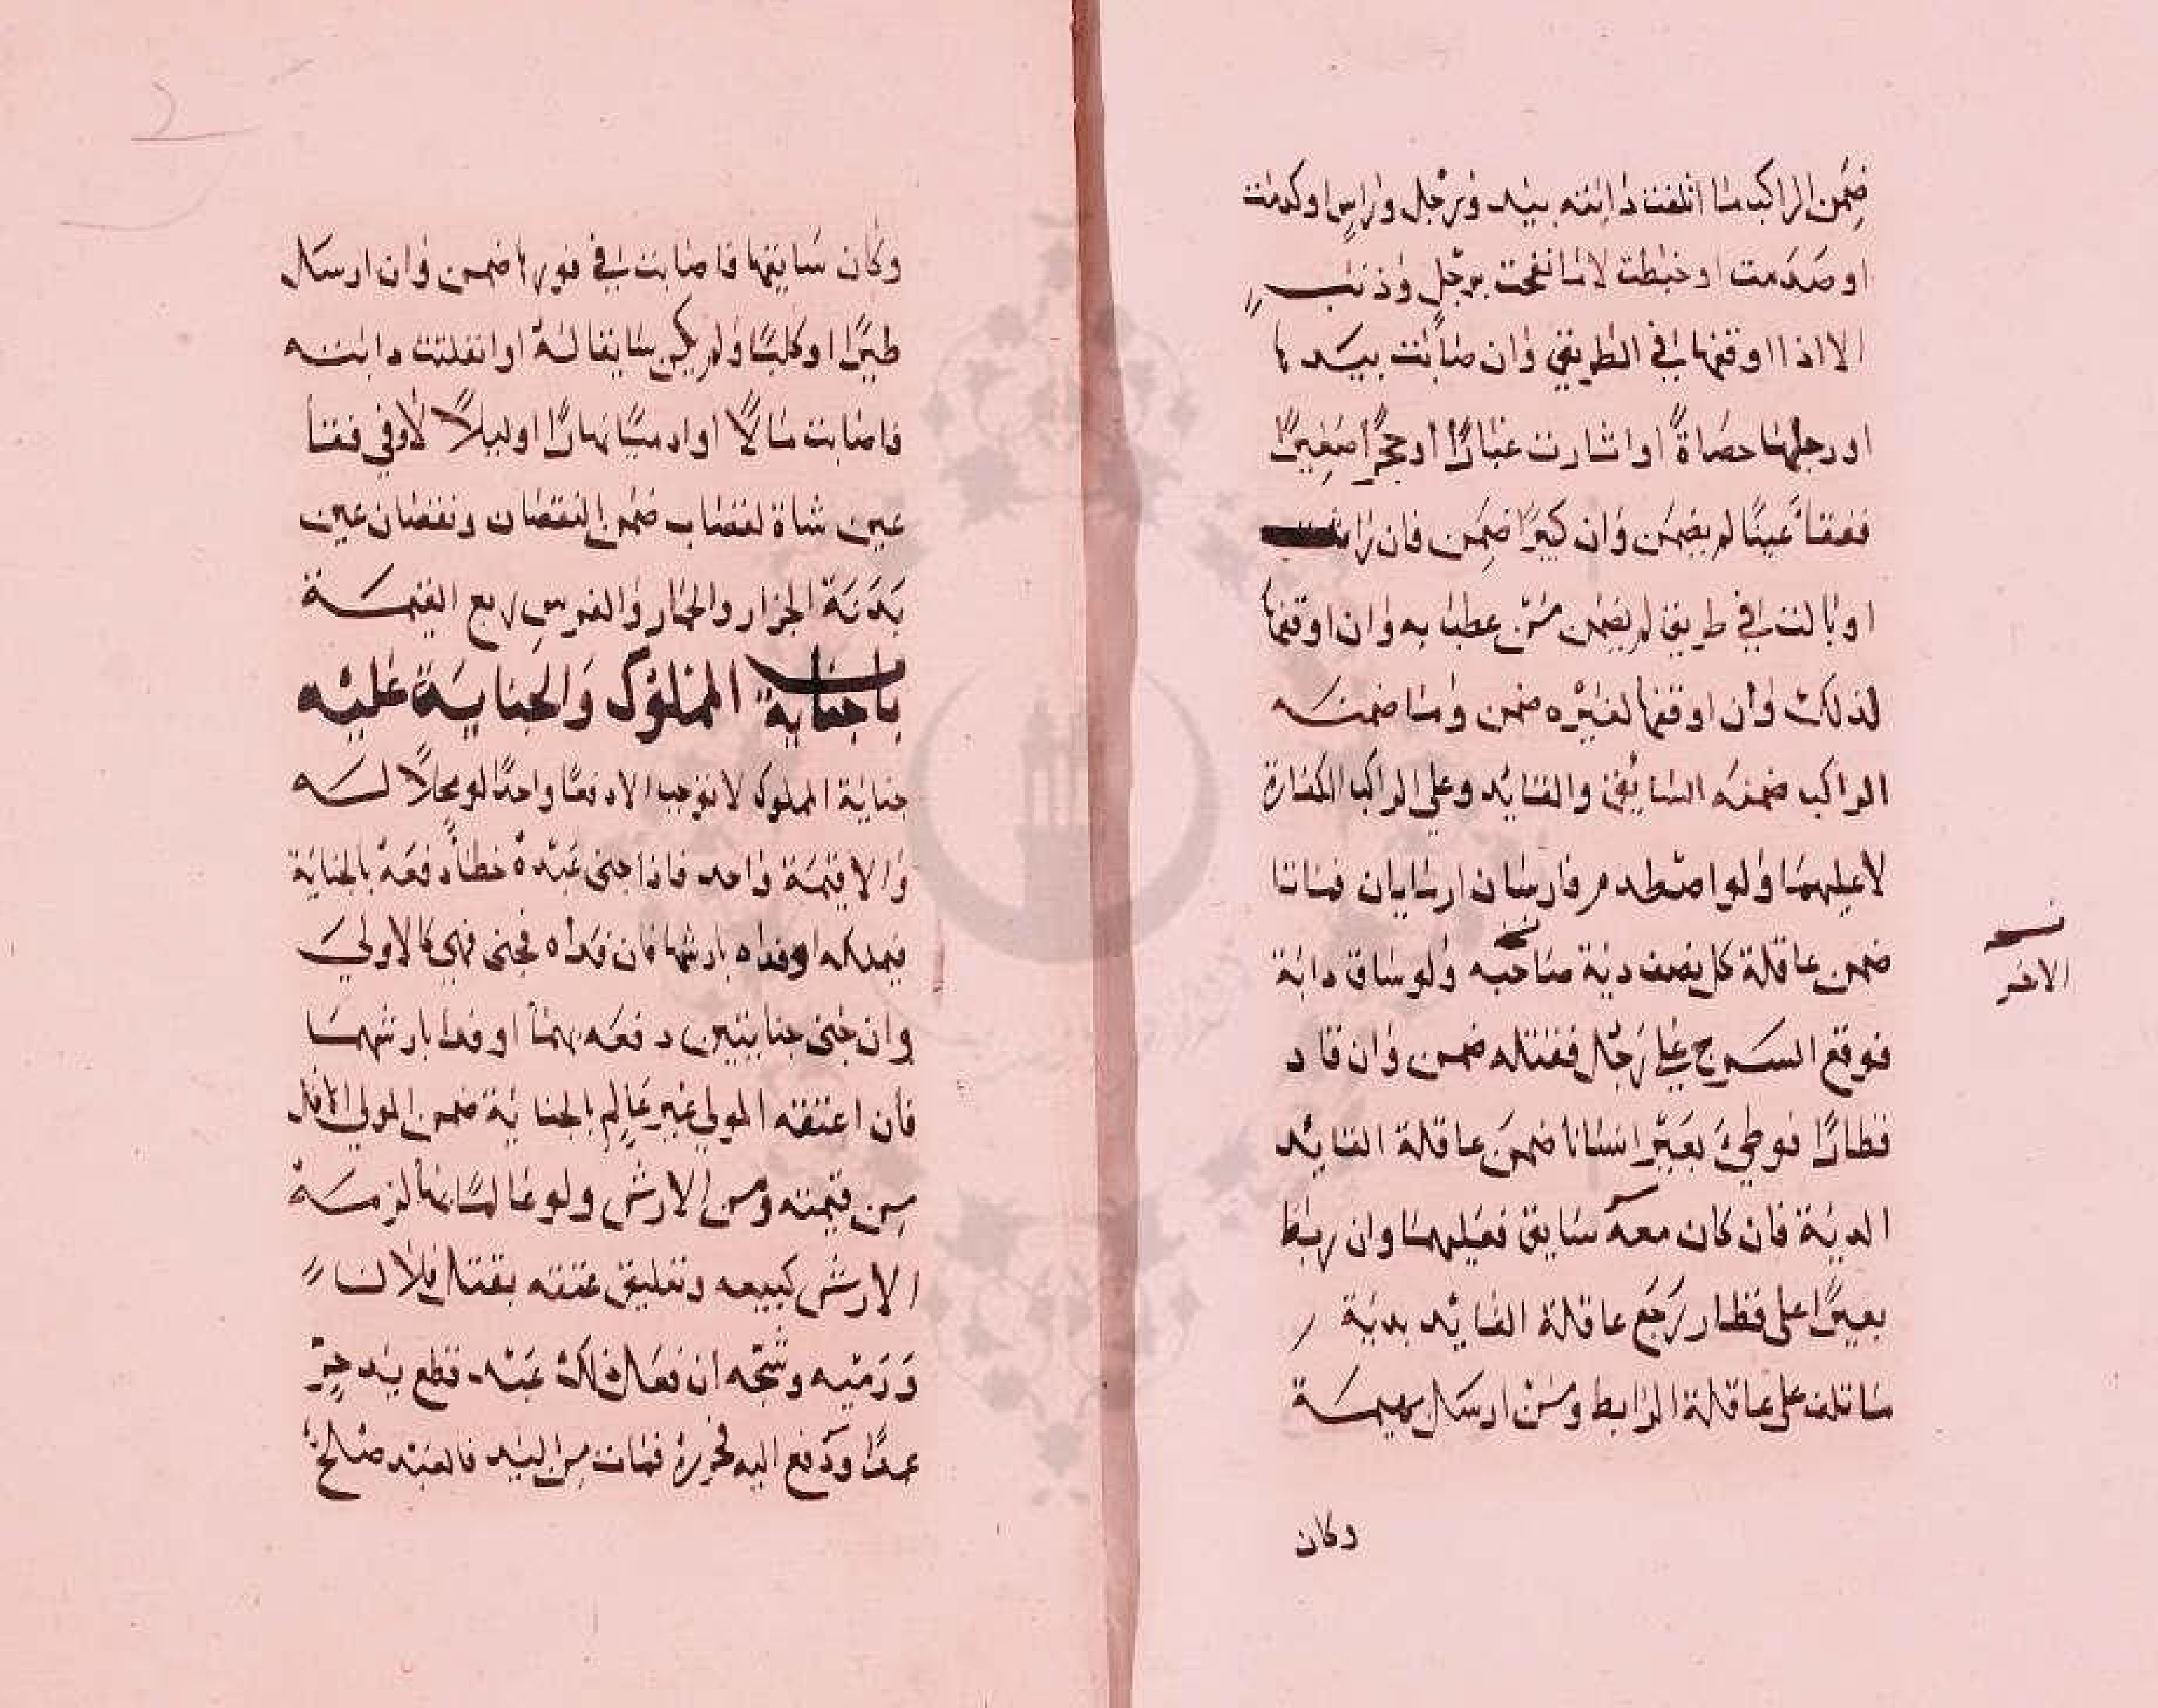 ضمن الراكب ما اتلفت دابته بيد وبرجل وراس او كدمت
او صدمت او خبطت لا ما نفحت برجل وذنب
الا اذا اوقفها في الطريق وان اصابت بيدها
او رجلها حصاة او اثارت غبارا او حجرا صغيرا
ففقأ عينا لم يضمن وان كبيرا ضمن فان راثت
او بالت في طريق لم يضمن من عطب به وان اوقفها
لذلك وان اوقفها لغيره ضمن وما ضمنه
الراكب ضمنه السايق والقايد وعلى الراكب الكفارة
لا عليهما ولو اصطدم فارسان او ماشيان فماتا
ضمن عاقلة كل نصف دية صاحبه ولو ساق دابة
نسخة
الاخر
فوقع السرج على رجل فقتله ضمن وان قاد
قطارا فوطئ بعير انسانا ضمن عاقلة القايد
الدية فان كان معه سايق فعليهما وان ربط
بعيرا على قطار رجع عاقلة القايد بدية
ما تلف على عاقلة الرابط ومن ارسل بهيمة
وكان
وكان سايقها فاصابت في فورها ضمن وان ارسل
طيرا او كلبا ولم يكن سايقا له او انفلتت دابته
فاصابت مالا او ادميا نهارا او ليلا لا وفي فقأ
عين شاة لقصاب ضمن النقصان ونقصان عين
بدنة الجزار والحمار والفرس ربع القيمة
باب جناية المملوك والجناية عليه
جناية المملوك لا توجب الا دفعا واحدا لو محلا له
والا قيمة واحدة فاذا جنى عبده خطأ دفعه بالجناية
فيملكه او فداه بارشها فان فداه فجنى فهي كالاولى
وان جنى جنايتين دفعه بهما او فداه بارشهما
فان اعتقه المولى غير عالم بالجناية ضمن المولى الاقل
من قيمته ومن الارش ولو عالما بها لزمه
الارش كبيعه وتعليق عتقه بقتل فلان
ورميه وشجه ان فعل ذلك عبد قطع يد حر
عمدا ودفع اليه فحرره فمات من اليد فالعبد صلح